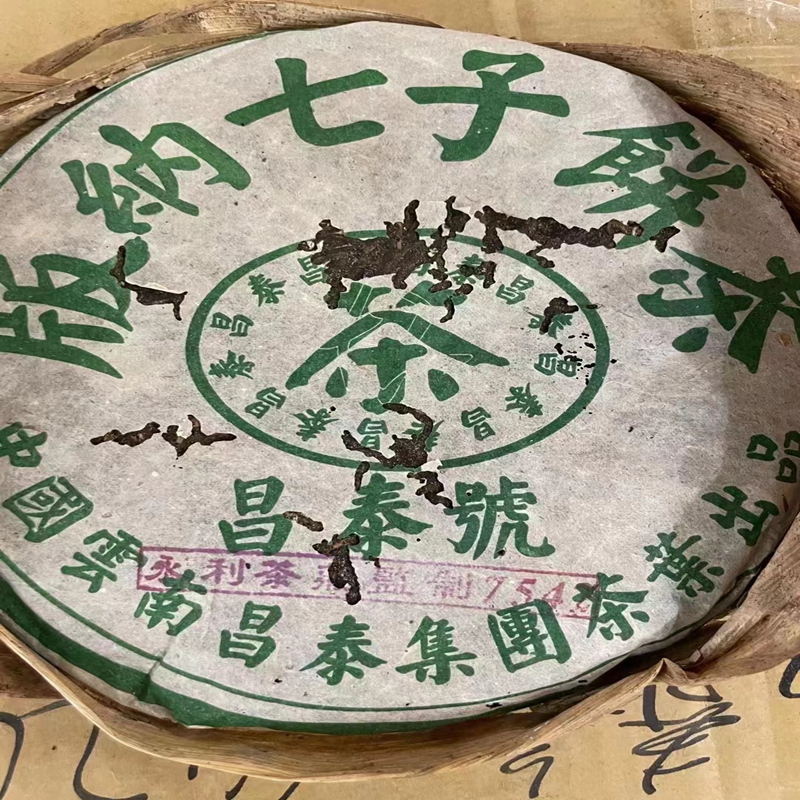 版納七子餅茶
泰昌泰昌泰昌泰昌泰昌泰昌泰昌
茶
昌泰號
永利茶監制754
中國雲南昌泰集團茶葉出品